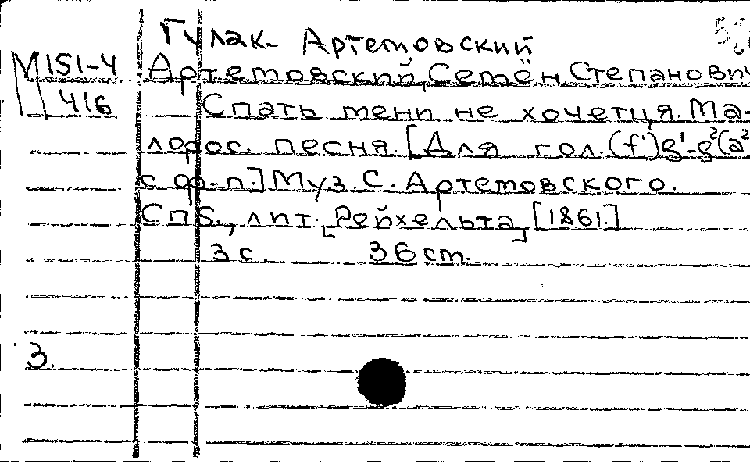 Гулак-Артемовский
М 151-4 Артемовский, Семён Степанович
416 Спать мени не хочетця. Ма-
лорос. песня. [Для гол. (f¹)g¹-g²(a²)
с ф-п.] Муз. С. Артемовского.
СПб., лит. [Рейхельта], [1861.]
3 с. 36 ст.
3.